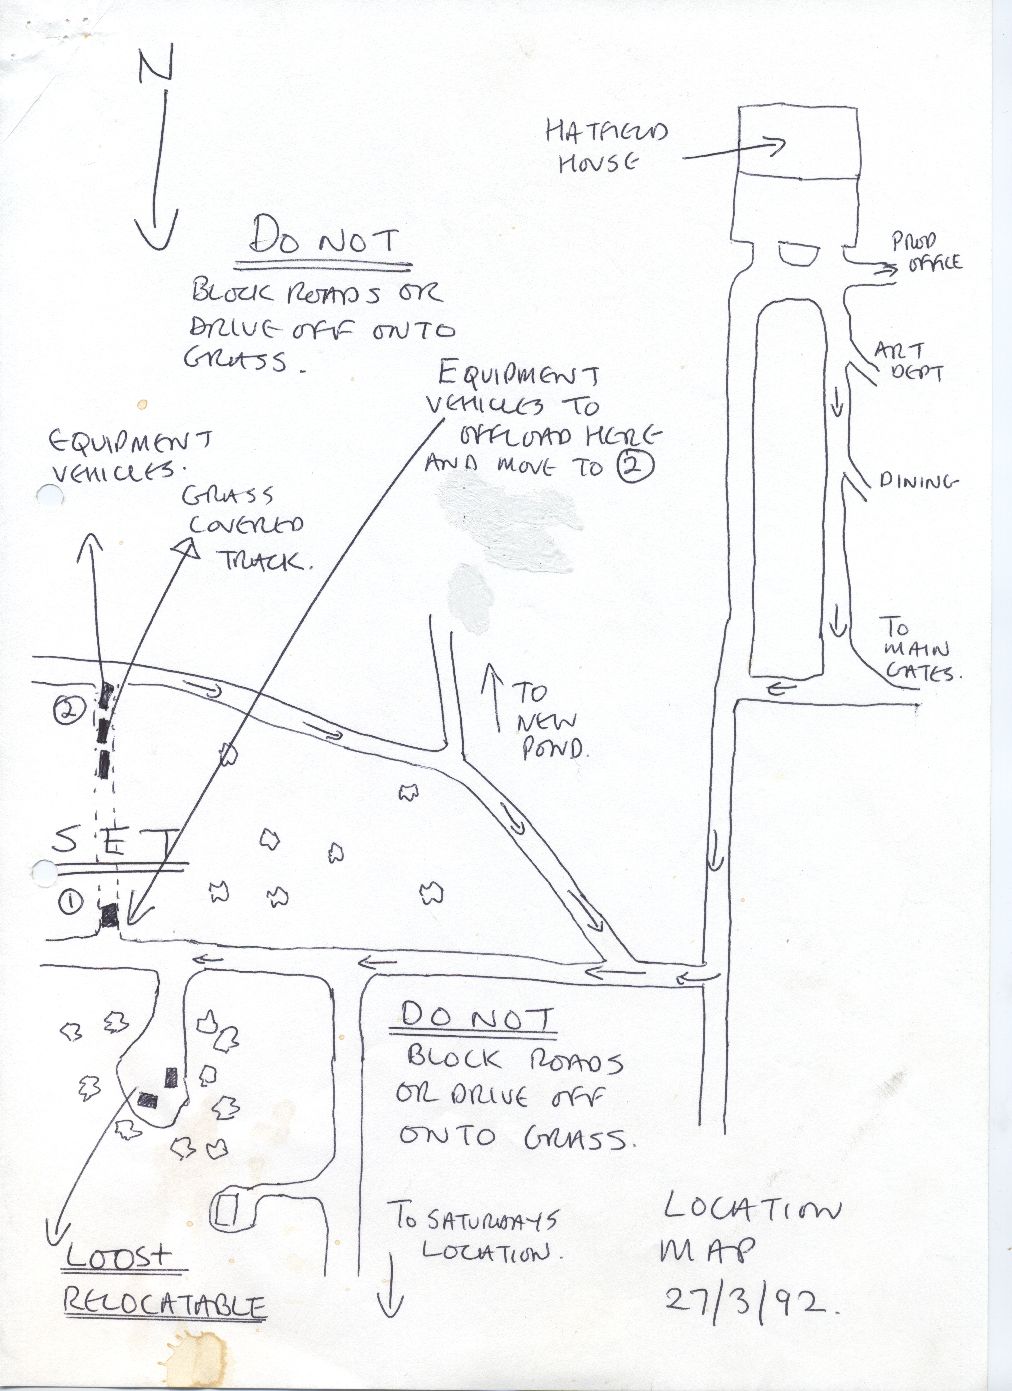 N
HATFIELD
HOUSE
DO NOT
BLOCK ROADS OR
DRIVE OFF ONTO
GRASS.
PROD
OFFICE
ART
DEPT
DINING
TO
MAIN
GATES.
EQUIPMENT
VEHICLES TO
OFFLOAD HERE
AND MOVE TO 2
EQUIPMENT
VEHICLES.
GRASS
COVERED
TRACK.
TO
NEW
POND.
2
SET
1
DO NOT
BLOCK ROADS
OR DRIVE OFF
ONTO GRASS.
TO SATURDAYS
LOCATION.
LOOS +
RELOCATABLE
LOCATION
MAP
27/3/92.